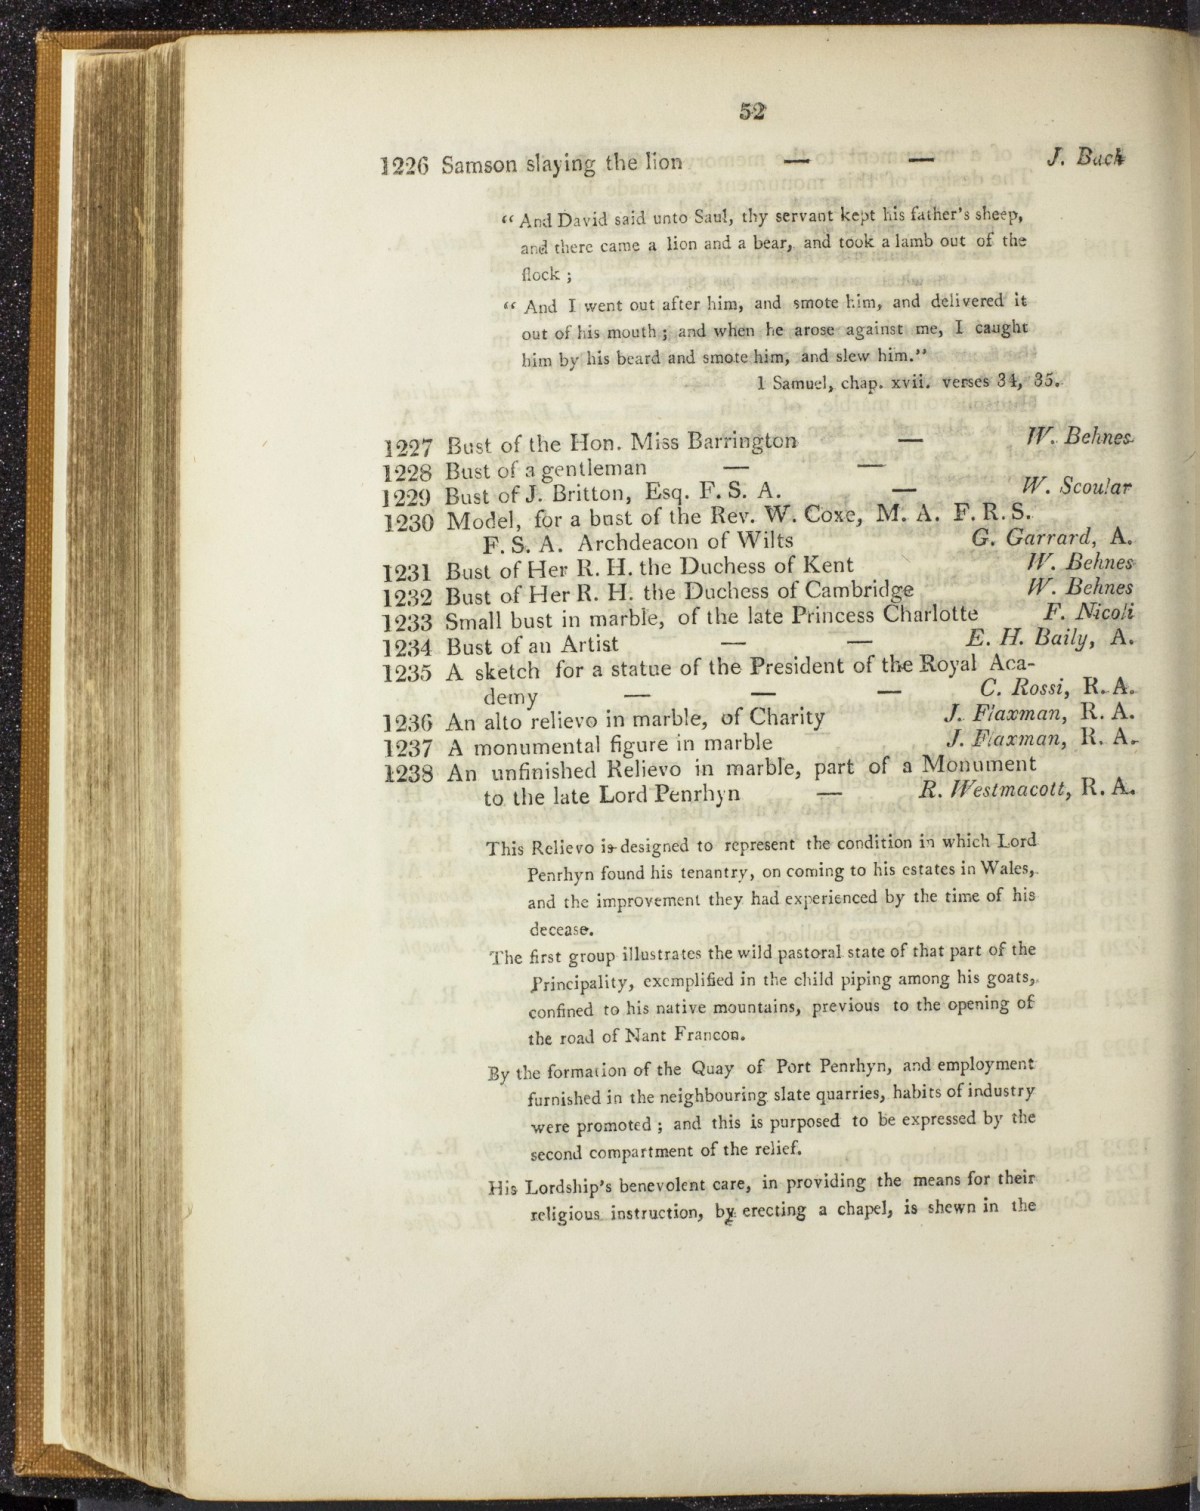 52
1226 Samson slaying the lion — — J. Back
“ And David said unto Saul, thy servant kept his father's sheep,
and there came a lion and a bear, and took a lamb out of the
flock ;
“ And I went out after him, and smote him, and delivered it
out of his mouth ; and when he arose against me, I caught
him by his beard and smote him, and slew him.”
1 Samuel, chap. xvii. verses 34, 35.
1227 Bust of the Hon. Miss Barrington — W. Behnes
1228 Bust of a gentleman — —
1229 Bust of J. Britton, Esq. F. S. A. — W. Scoular
1230 Model, for a bust of the Rev. W. Coxe, M. A. F. R. S.
F. S. A. Archdeacon of Wilts G. Garrard, A.
1231 Bust of Her R. H. the Duchess of Kent W. Behnes
1232 Bust of Her R. H. the Duchess of Cambridge W. Behnes
1233 Small bust in marble, of the late Princess Charlotte F. Nicoli
1234 Bust of an Artist — — E. H. Baily, A.
1235 A sketch for a statue of the President of the Royal Aca-
demy — — — C. Rossi, R. A.
1236 An alto relievo in marble, of Charity J. Flaxman, R. A.
1237 A monumental figure in marble J. Flaxman, R. A.
1238 An unfinished Relievo in marble, part of a Monument
to the late Lord Penrhyn — R. Westmacott, R. A.
This Relievo is designed to represent the condition in which Lord
Penrhyn found his tenantry, on coming to his estates in Wales,
and the improvement they had experienced by the time of his
decease.
The first group illustrates the wild pastoral state of that part of the
Principality, exemplified in the child piping among his goats,
confined to his native mountains, previous to the opening of
the road of Nant Francon.
By the formation of the Quay of Port Penrhyn, and employment
furnished in the neighbouring slate quarries, habits of industry
were promoted ; and this is purposed to be expressed by the
second compartment of the relief.
His Lordship's benevolent care, in providing the means for their
religious instruction, by erecting a chapel, is shewn in the